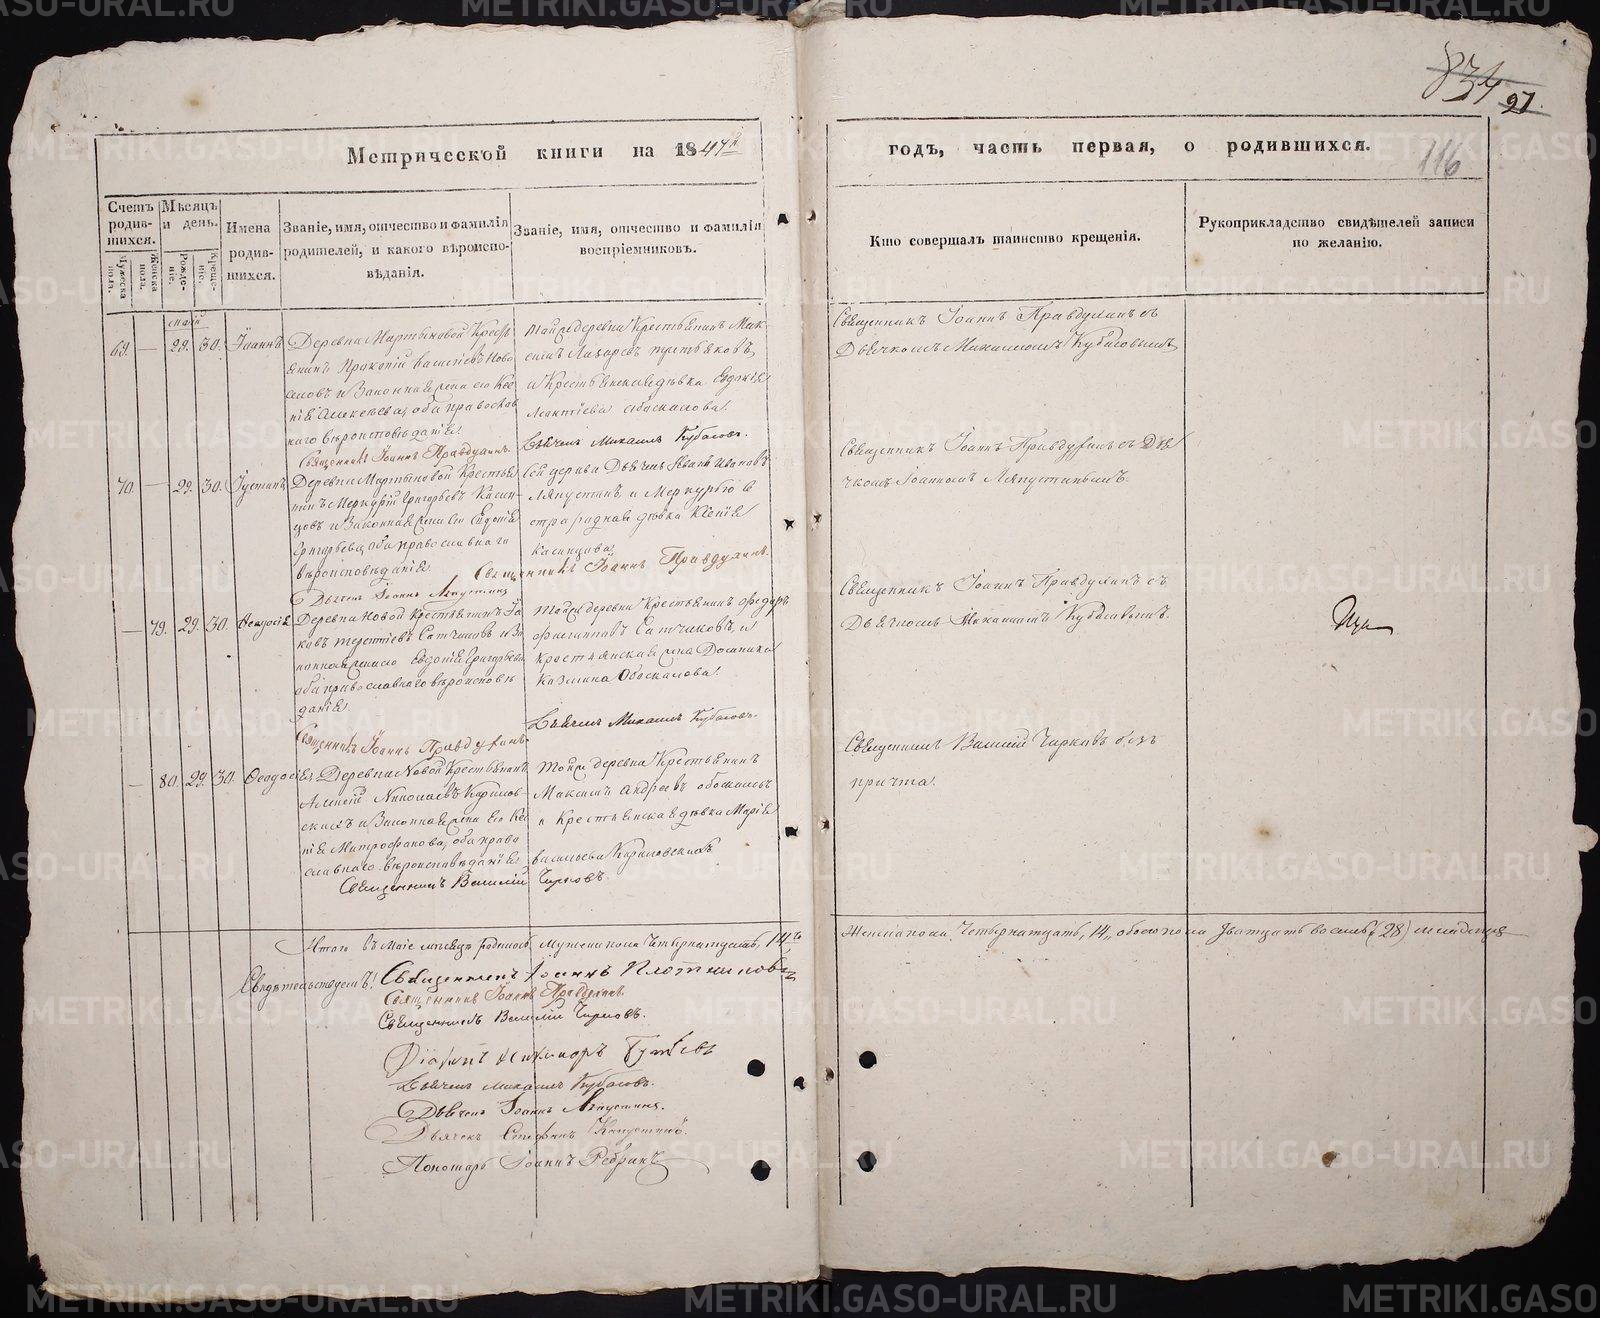 834
97.
116
Метрической книги на 1847й
годъ, часть первая, о родившихся.
Счетъ родив-
шихся.
Мужеска пола.
Женска пола.
Мѣсяцъ
и день.
Рожде-
ніе.
Креще-
ніе.
Имена
родив-
шихся.
Званіе, имя, отчество и фамилія
родителей, и какого вѣроиспо-
вѣданія.
Званіе, имя, отчество и фамилія
воспріемниковъ.
Кто совершалъ таинство крещенія.
Рукоприкладство свидѣтелей записи
по желанію.
маій
69. — 29. 30. Іоаннъ
Деревни Мартыновой Кресть
янинъ Прокопій Васильевъ Ново
селовъ и Законная жена его Ксе
нія Алексѣева, оба православ
наго вѣроисповѣданія.
Священникъ Іоаннъ Правдухинъ.
Той же деревни Крестьянинъ Мак-
симъ Лазаревъ
и Крестьянская дѣвка Евдокія
Леонтіева Обоскалова.
Дьячекъ Михаилъ Кубасовъ.
Священникъ Іоаннъ Правдухинъ съ
Дьячкомъ Михаиломъ Кубасовымъ.
70. — 29. 30. Іустинъ
Деревни Мартыновой Крестья
нинъ Меркурій Григорьевъ Касин
цовъ и Законная жена его Евдокія
Григорьева, оба православнаго
вѣроисповѣданія.
Священникъ Іоаннъ Правдухинъ.
Дьячекъ Іоаннъ Ляпустинъ
Дьячекъ Иванъ Ивановъ
Ляпустинъ и
дѣвка Ксенія
Касинцова.
Священникъ Іоаннъ Правдухинъ съ Дья
чкомъ Іоанномъ Ляпустинымъ.
— 79. 29. 30. Ѳеодосія
Деревни Новой Крестьянинъ Іа
ковъ Терентіевъ Сатчиковъ и За
конная жена его Евдокія Григорьева
оба православнаго вѣроисповѣ
данія.
Священникъ Іоаннъ Правдухинъ.
Той же деревни Крестьянинъ Федоръ
Филипповъ Сатчиковъ, и
крестьянская жена Домника
Козмина Обоскалова.
Дьячекъ Михаилъ Кубасовъ.
Священникъ Іоаннъ Правдухинъ съ
Дьячкомъ Михаиломъ Кубасовымъ.
— 80. 29. 30. Ѳеодосія
Деревни Новой Крестьянинъ
Алексій Николаевъ Кариловъ-
скихъ и Законная жена его Ксе
нія Митрофанова, оба право
славнаго вѣроисповѣданія.
Священникъ Василій Чирковъ.
Той же деревни Крестьянинъ
Максимъ Андреевъ
и Крестьянская дѣвка Марія
Васильева Кариловскихъ
Священникъ Василій Чирковъ безъ
причта.
Итого въ маіе мѣсяцѣ родилось Мужеска пола Четырнатцать, 14,
Женска пола Четырнатцать, 14, обоего пола Дватцать восемь (28) младенцевъ
Свидѣтельствуемъ: Священникъ Іоаннъ Плотниковъ
Священникъ Іоаннъ Правдухинъ.
Священникъ Василій Чирковъ.
Діаконъ Никаноръ
Дьячекъ Михаилъ Кубасовъ.
Дьячекъ Іоаннъ Ляпустинъ.
Дьячекъ Стефанъ
Пономарь Іоаннъ Ребринъ
METRIKI.GASO-URAL.RU